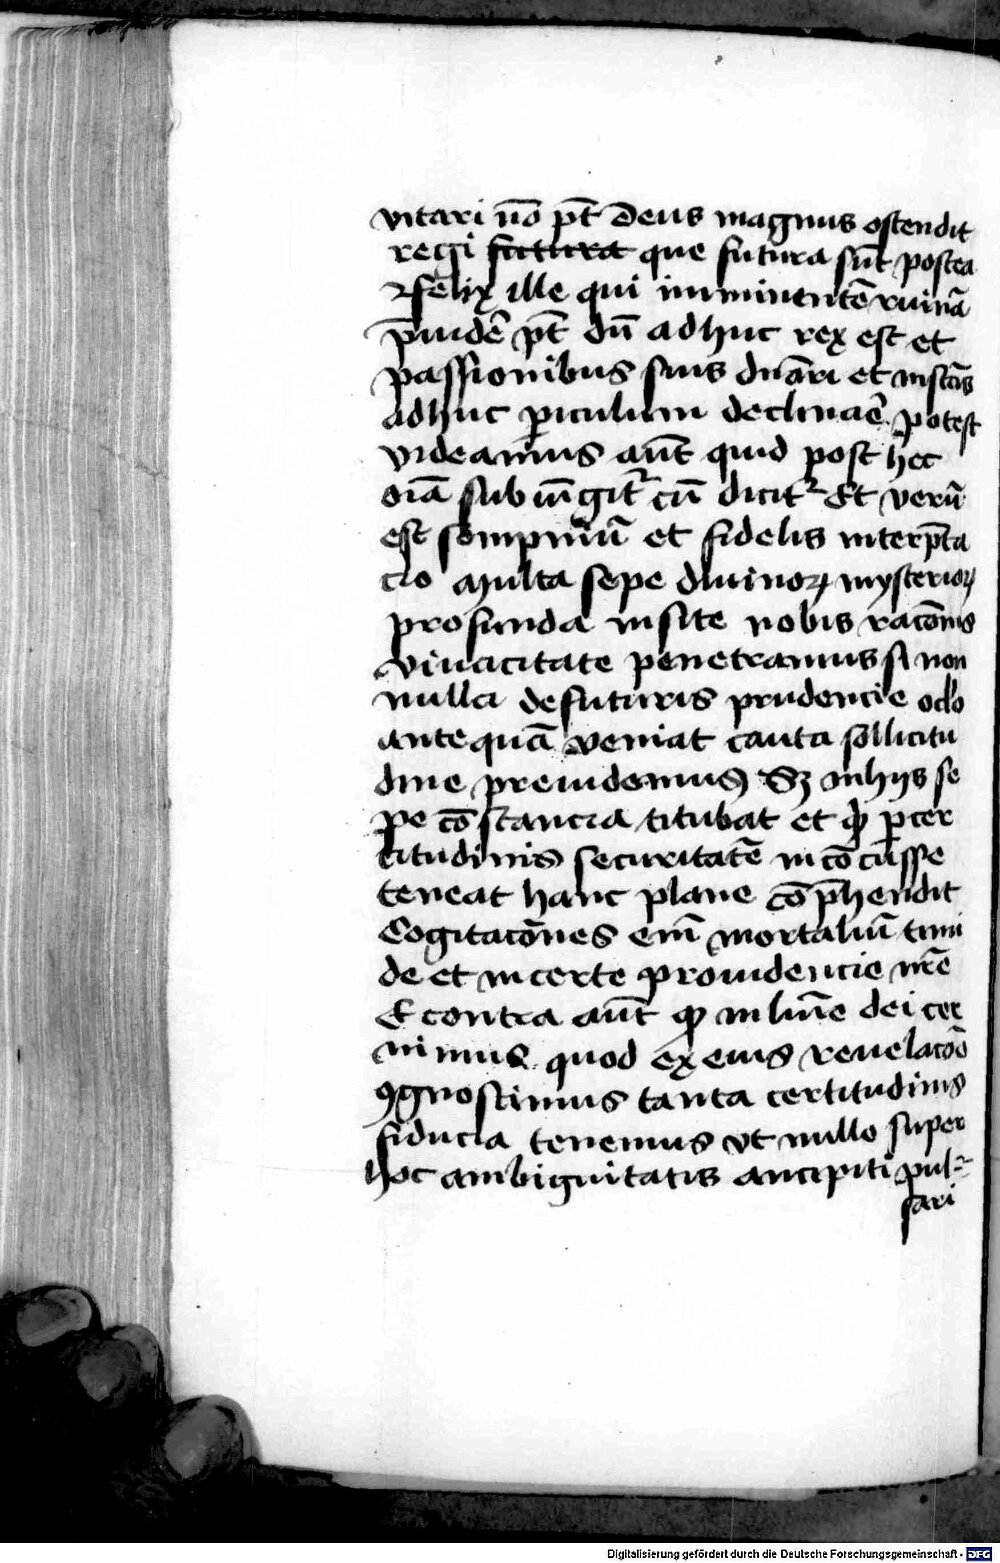 vitari nō pt̄ Deus magnus ostendit
regi futura que futura sūt postea
felix ille qui imminentē ruinā
p̄uidē pt̄ dū adhuc rex est et
passionibus suis dn̄ari et instās
adhuc piculum declinaē potest
videamus aūt quid post hec
oīa subiūgit͛ cū dicit͛ Et verū
est sompniū et fidelis interp̄ta
cio Multa sepe diuinoꝝ mysterioꝝ
profunda insite nobis racōnis
viuacitate penetramus si non
nulla de futuris prudencie oclo
ante quā veniat cauta sollicitu
dine preuidemus Sꝫ in hijs se
pe cōstancia titubat et ꝙ ꝑ cer
titudinis securitatē incōcusse
teneat hanc plane cōp̄hendit
Cogitacōnes em̄ mortaliū timi
de et incerte prouidencie nr̄e
E contra aūt ꝙ in lumīe dei cer
nimus quod ex eius reuelacōe
ꝯgnoscimus tanta certitudinis
fiducia tenemus vt nullo super
hoc ambiguitatis ancipiti pul⸗
sari
Digitalisierung gefördert durch die Deutsche Forschungsgemeinschaft - DFG